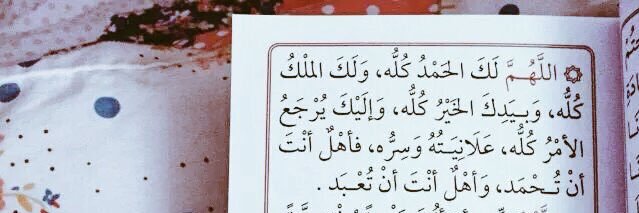 ۞ اللَّهُمَّ لَكَ الحَمْدُ كُلُّه، وَلَكَ المُلْكُ
كُلُّه، وَبِيَدِكَ الخَيْرُ كُلُّه، وَإلَيْكَ يُرْجَعُ
الأمْرُ كُلُّه، عَلَانِيَتُهُ وَسِرُّه، فأهْلٌ أنْتَ
أنْ تُـحْمَد، وَأهْلٌ أنْتَ أنْ تُعْبَد .